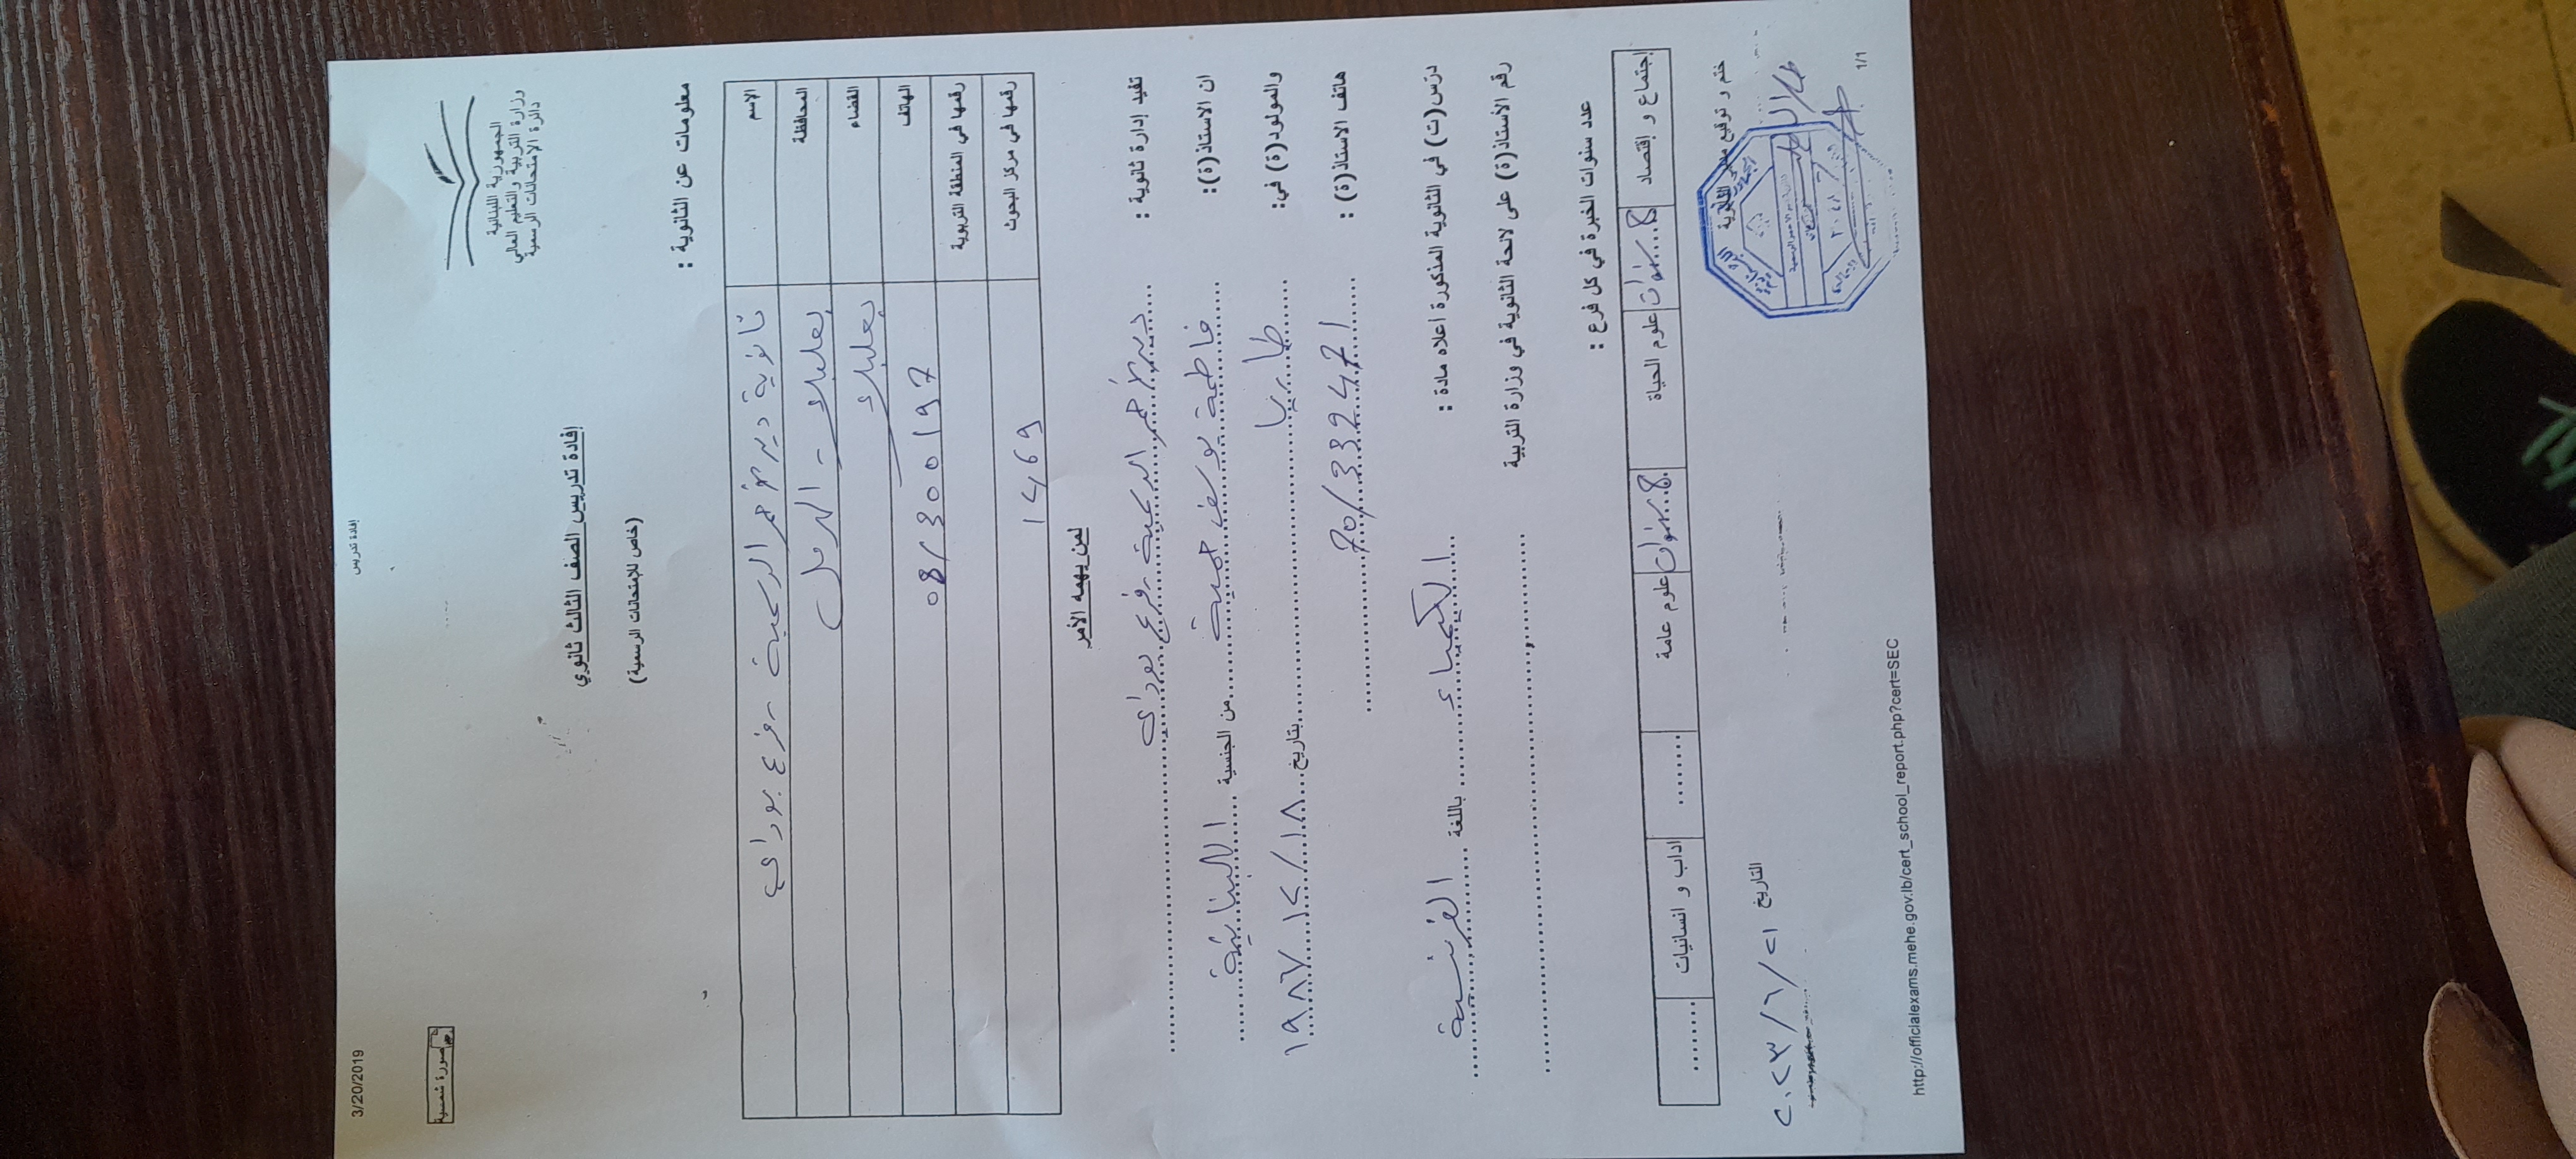 3/20/2019
إفادة تدريس
صورة شمسية
الجمهورية اللبنانية
وزارة التربية و التعليم العالي
دائرة الامتحانات الرسمية
إفادة تدريس الصف الثالث ثانوي
(خاص للإمتحانات الرسمية)
معلومات عن الثانوية :
الإسم ثانوية دير الأحمر الرسمية - فرع بوداي
المحافظة بعلبك - الهرمل
القضاء بعلبك
الهاتف 08/300197
رقمها في المنطقة التربوية
رقمها في مركز البحوث ١٤٦٩
لمن يهمه الأمر
تفيد إدارة ثانوية : دير الأحمر الرسمية - فرع بوداي
ان الاستاذ(ة): فاطمة يوسف حمية من الجنسية اللبنانية
والمولود(ة) في: طاريا بتاريخ ١٨/١٢/١٩٨٧
هاتف الاستاذ(ة) : 70/332471
درّس(ت) في الثانوية المذكورة اعلاه مادة : الكيمياء باللغة الفرنسية
رقم الأستاذ(ة) على لائحة الثانوية في وزارة التربية
عدد سنوات الخبرة في كل فرع :
اجتماع و إقتصاد 8 سنوات علوم الحياة 8 سنوات علوم عامة اداب و انسانيات
ختم و توقيع مدير الثانوية
التاريخ ٢١/٦/٢٠٢٣
http://officialexams.mehe.gov.lb/cert_school_report.php?cert=SEC
1/1